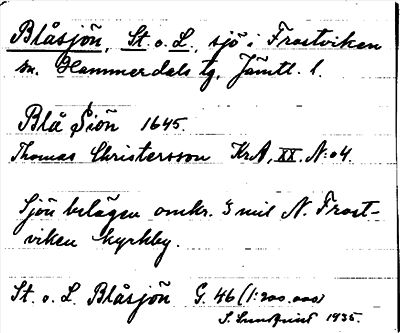 Blåsjön, St. o. L., sjö i Frostviken
sn. Hammerdals tg, Jämtl. l.
Blå Siön 1645.
Thomas Christersson KrA, XX. N:o 4.
Sjön belägen omkr. 3 mil N. Frost-
viken kyrkby.
St. o. L. Blåsjön G. 46 (1:200.000)
S. Lundquist 1935.